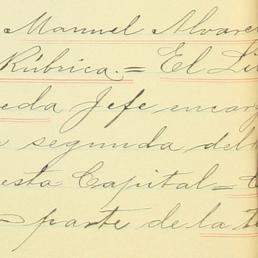 Manuel Alvare
Rúbrica.= El Li
eda Jefe encarg
segunda del
esta Capital =
parte de la t